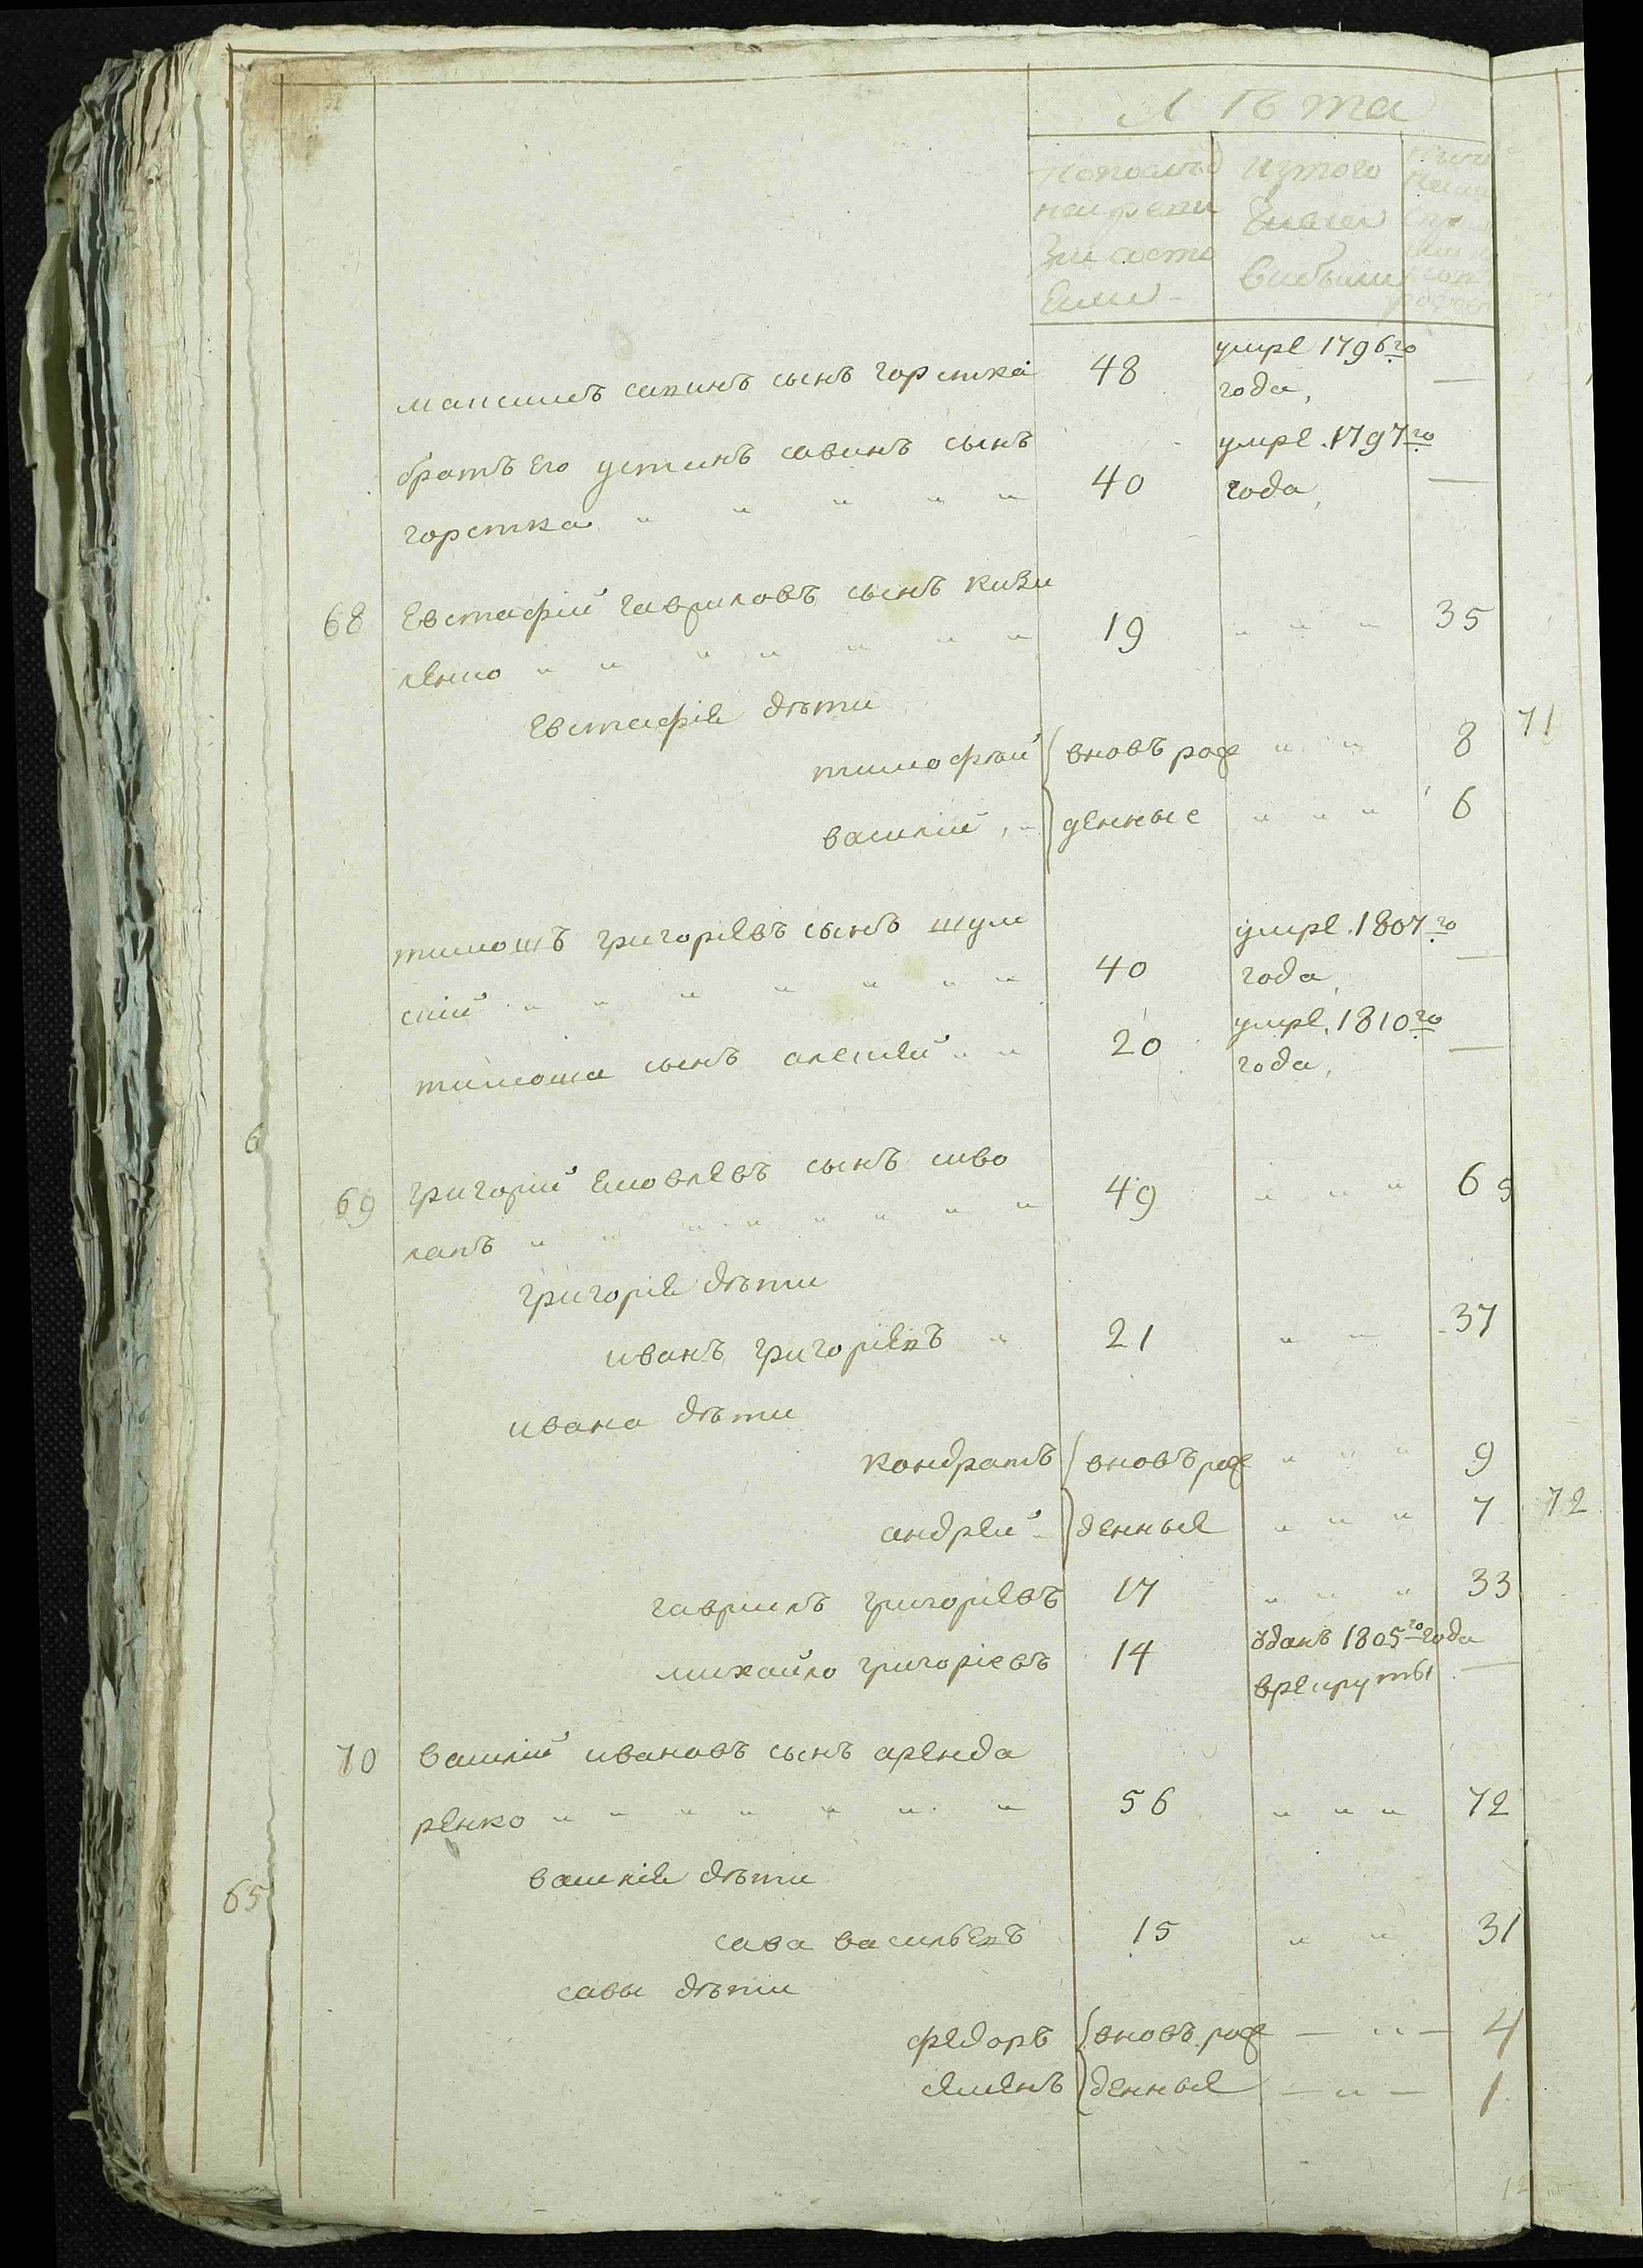 Лѣта
попослѣд ней реви зіи состо яли
изтого числа выбыли
максимъ савинъ сынъ горстка 48 умре 1796го года, —
братъ его устинъ савинъ сынъ
горстка 40 умре 1797го года, —
68 Евстафій гавриловъ сынъ кизи
ленко 19 35
Евстафія дѣти
тимофѣй вновърож 8 71
василій денные 6
тимошъ григоріевъ сынъ
40 умре 1807го года, —
тимоша сынъ алексѣй 20 умре 1810го года, —
69 григорій яковлевъ сынъ сиво
лапъ 49 65
григорія дѣти
иванъ григоріевъ 21 37
ивана дѣти
кондратъ вновърож 9
андрей денные 7 72
гаврилъ григоріевъ 17 33
михайло григоріевъ 14 ѿданъ 1805го года врекруты —
70 василій ивановъ сынъ аренда
ренко 56 72
василія дѣти
сава васильевъ 15 31
савы дѣти
федоръ вновърож 4
семенъ денные 1
6
65